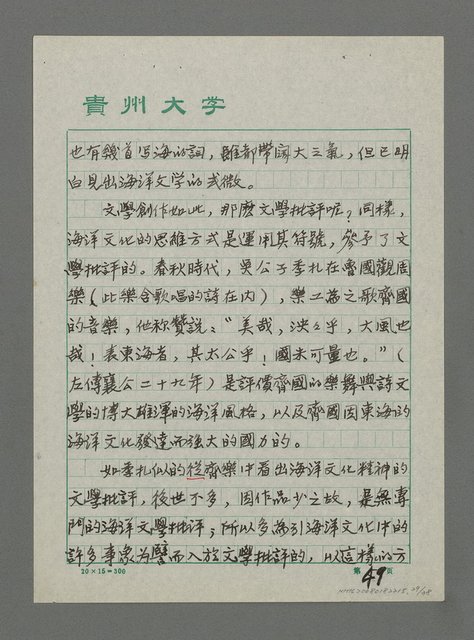 貴州大学
也有幾首写海的詞，雖都帶闊大之氣，但已明
白見出海洋文学的式微。
文學創作如此，那麽文學批評呢？同樣，
海洋文化的思維方式是運用其符號，參予了文
學批評的。春秋時代，吳公子季札在魯國觀周
樂（此樂含歌唱的詩在内），樂工為之歌齊國
的音樂，他称贊說：“美哉，泱々乎，大風也
哉！表東海者，其太公乎！國未可量也。”（
左傳襄公二十九年）是評價齊國的樂舞與詩文
學的博大雄渾的海洋風格，以及齊國因東海的
海洋文化發達而強大的國力的。
如季札似的從齊樂中看出海洋文化精神的
文學批評，後世不多，因作品少之故，是無專
門的海洋文學批评；所以多為引海洋文化中的
許多事象為譬而入於文學批評的，以這樣的方
20×15=300
第49页